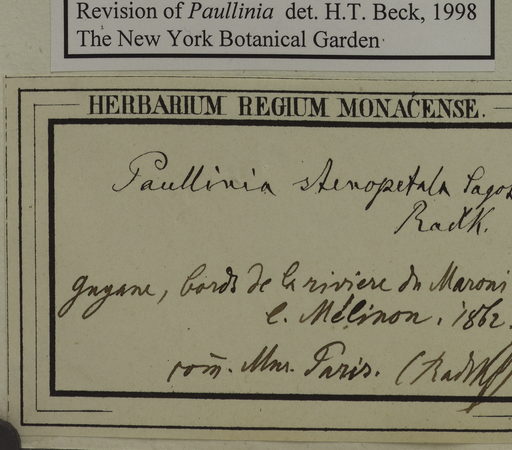 Revision of Paullinia det. H.T. Beck, 1998
The New York Botanical Garden
HERBARIUM REGIUM MONACENSE.
Paullinia stenopetala Sagot
Radlk.
Guyane, bords de la riviere du Maroni
c. Mélinon, 1862.
com̄. Mus. Paris. (Radlk)